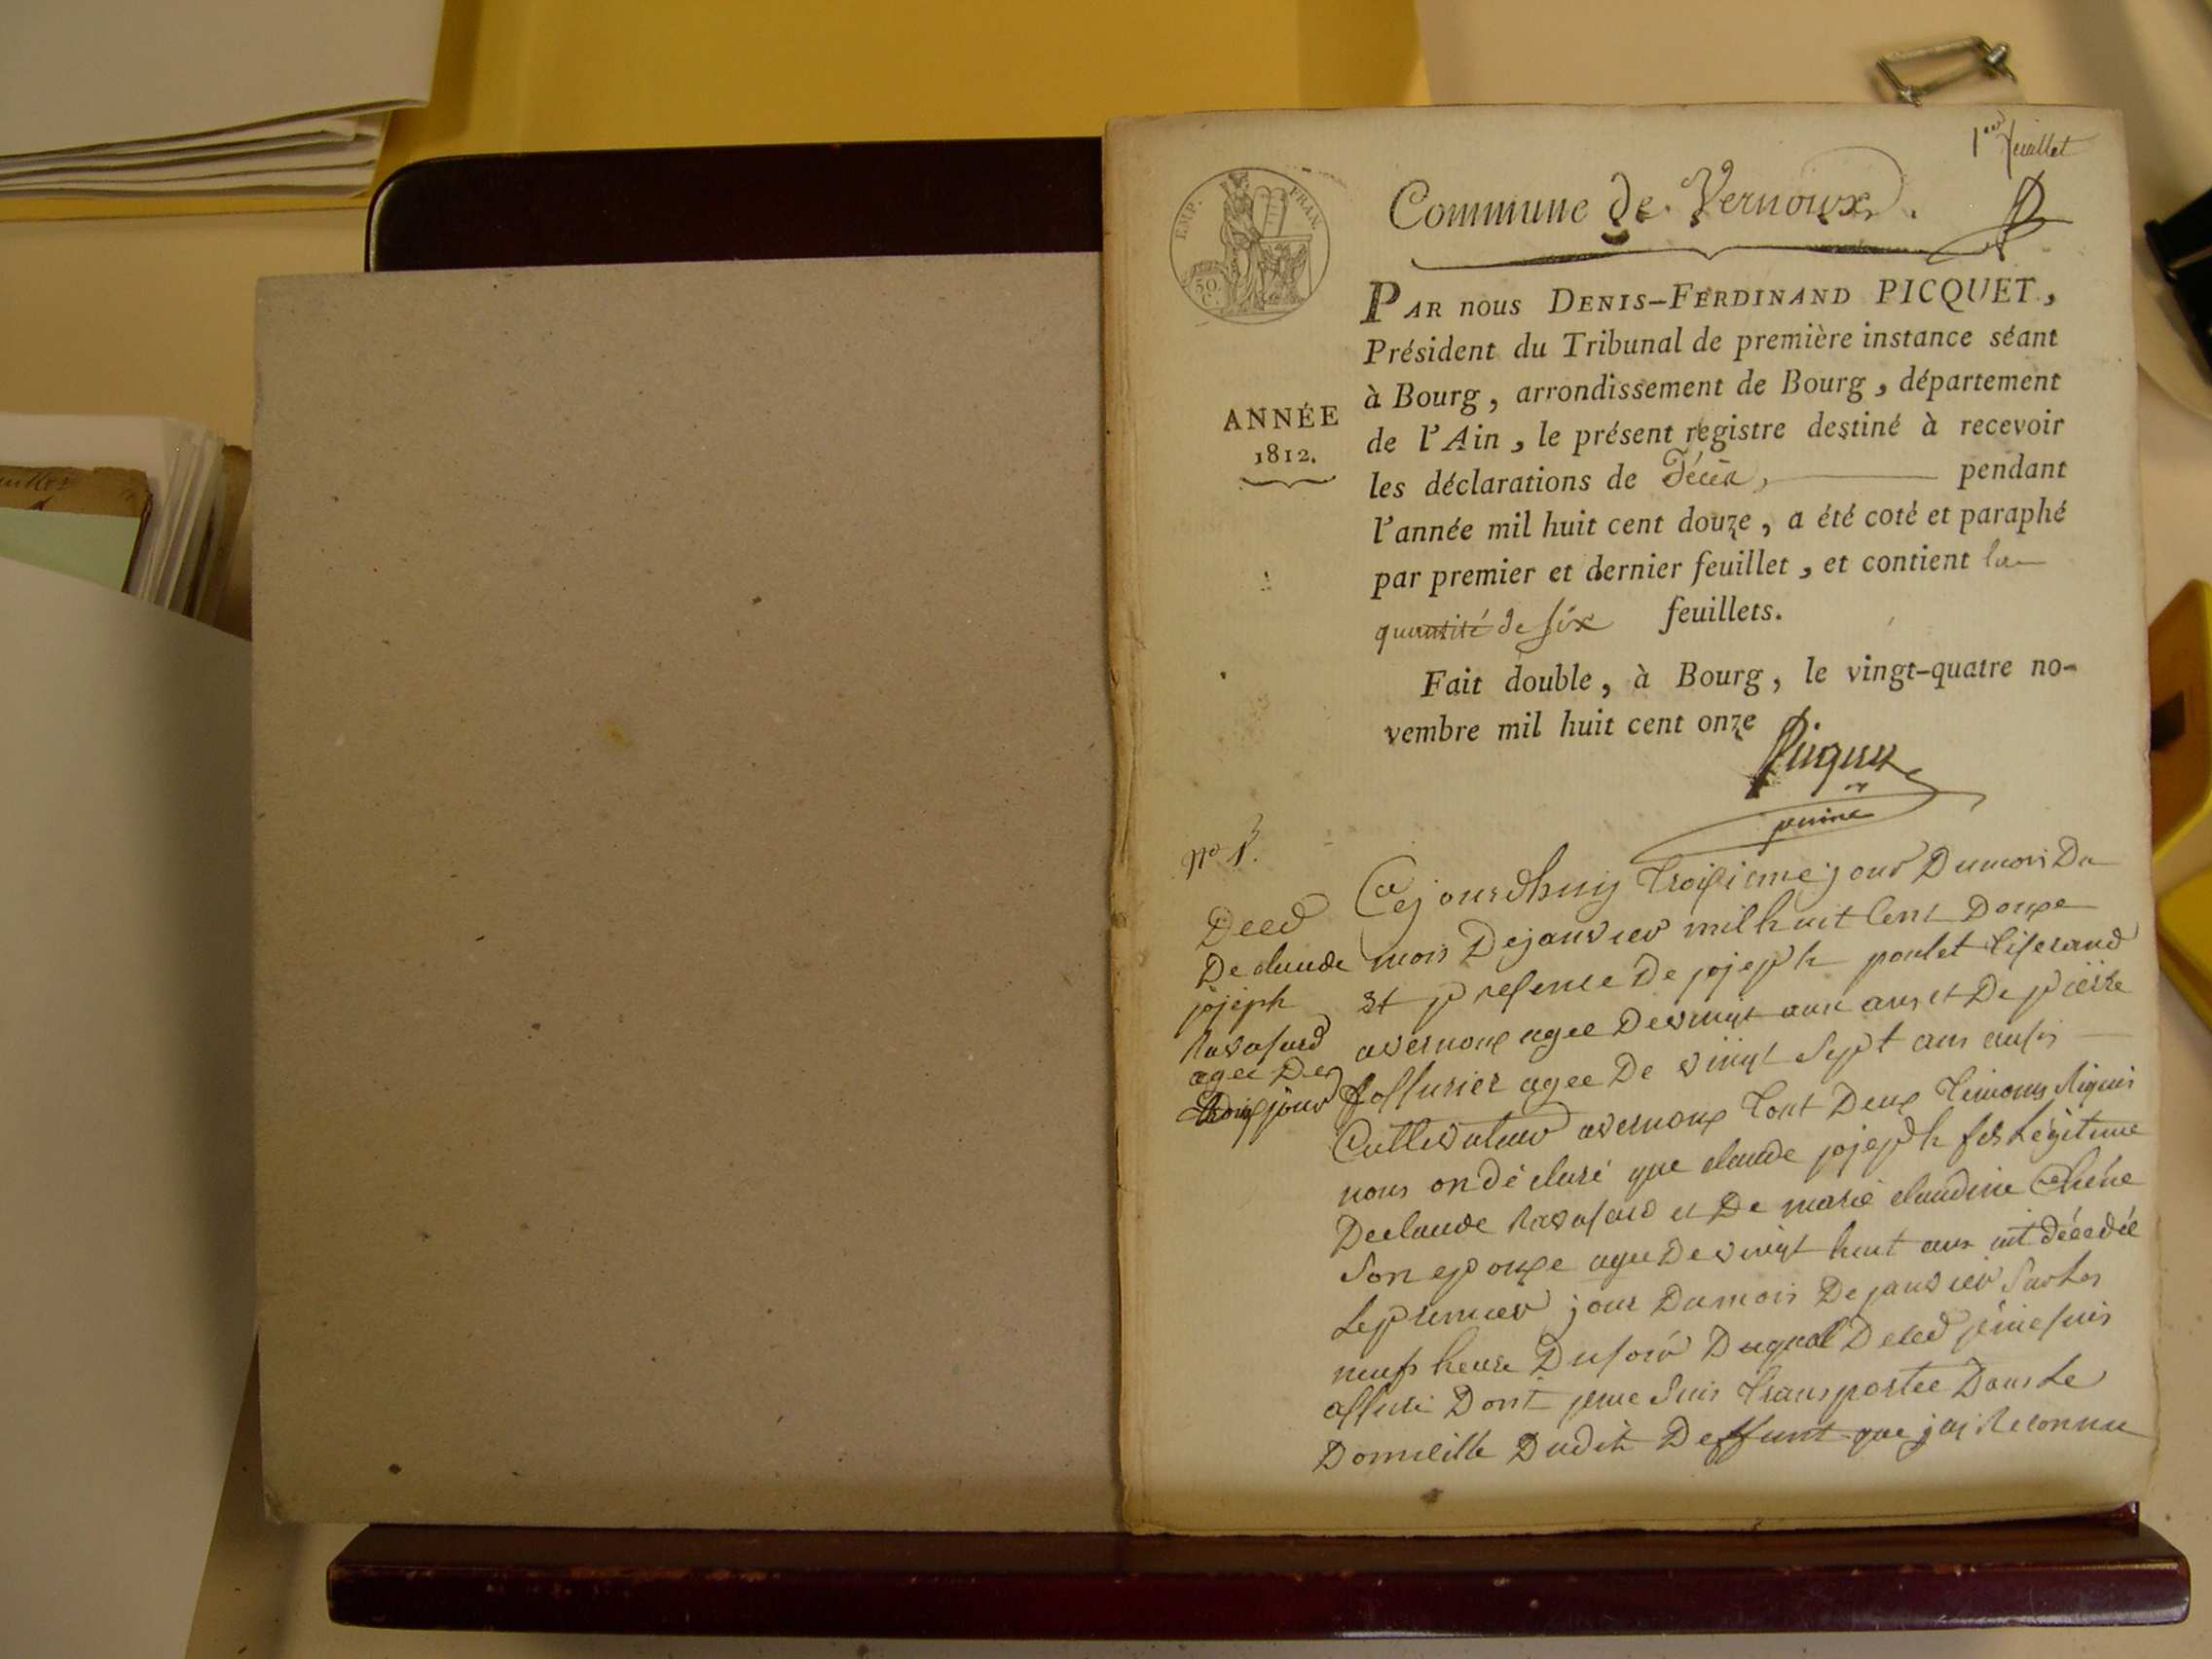 1er feuillet
EMP. FRAN.
50. C.
Commune de Vernoux.
PAR nous DENIS-FERDINAND PICQUET,
Président du Tribunal de première instance séant
à Bourg, arrondissement de Bourg, département
de l'Ain, le présent registre destiné à recevoir
les déclarations de Décès, pendant
l'année mil huit cent douze, a été coté et paraphé
par premier et dernier feuillet, et contient la
quantité de six feuillets.
Fait double, à Bourg, le vingt-quatre no-
vembre mil huit cent onze
ANNÉE
1812.
Picquet
No 1.
Deed
De claude
jojeph
Ravasard
agee De
trois jour
Cejourdhuy troisieme jour Dumois Du
mois Dejanvier mil huit Cent Douze
Et presence De jojeph poulet tiserand
avernoux agee Devingt ans et De pierre
agee De vingt Sept ans ausis
Cultivateur avernoux tout Deux temoins Riquis
nous on déclaré que claude jojeph fils Légitime
Declaude Ravasard et De marie claudine Chêne
Son epouxe agee Devingt huit ans est décedée
Lepremier jour Dumois Dejanvier Surles
neufs heure Dusoir Duquel Deced jemesuis
assuré Dont jeme Suis transportée Dans Le
Domicille Dudit Deffunt que jai Reconnue